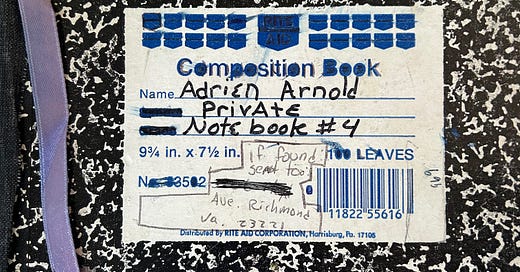 RITE
AID
Composition Book
Name Adrien Arnold
Private
Notebook #4
9¾ in. x 7½ in. 100 LEAVES
if found
send too:
No 33502
Ave. Richmond
Va. 23221
11822 55616
Distributed by RITE AID CORPORATION, Harrisburg, Pa. 17105